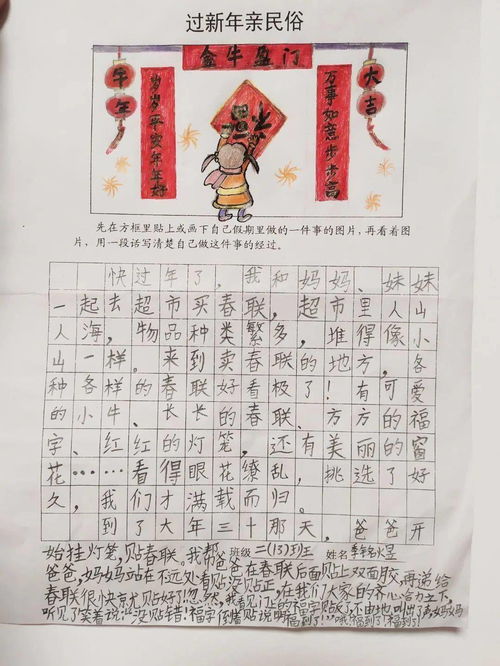 过新年亲民俗
金牛盈门
牛年
大吉
岁岁平安年年好
万事如意步步高
先在方框里贴上或画下自己假期里做的一件事的图片，再看着图
片，用一段话写清楚自己做这件事的经过。
快过年了，我和妈妈、妹妹
一起去超市买春联，超市里人山
人海，物品种类繁多，堆得像小
山一样。来到卖春联的地方，各
种各样的春联好看极了！有可爱
的小牛、长长的春联、方方的福
字、红红的灯笼，还有美丽的窗
花……看得眼花缭乱，挑选了好
久，我们才满载而归。
到了大年三十那天，爸爸开
始挂灯笼，贴春联。我帮 班级 二(13)班 姓名
爸爸，妈妈站在不远处看贴没贴正，在春联后面贴上双面胶，再递给
春联很快就贴好了！忽然，我看见门上的福字贴反了，在我们大家的齐心合力之下，
不由地叫出了声，妈妈
听见了笑着说：没贴错！福字倒着贴说明福到了！哦！福到了！福到了！